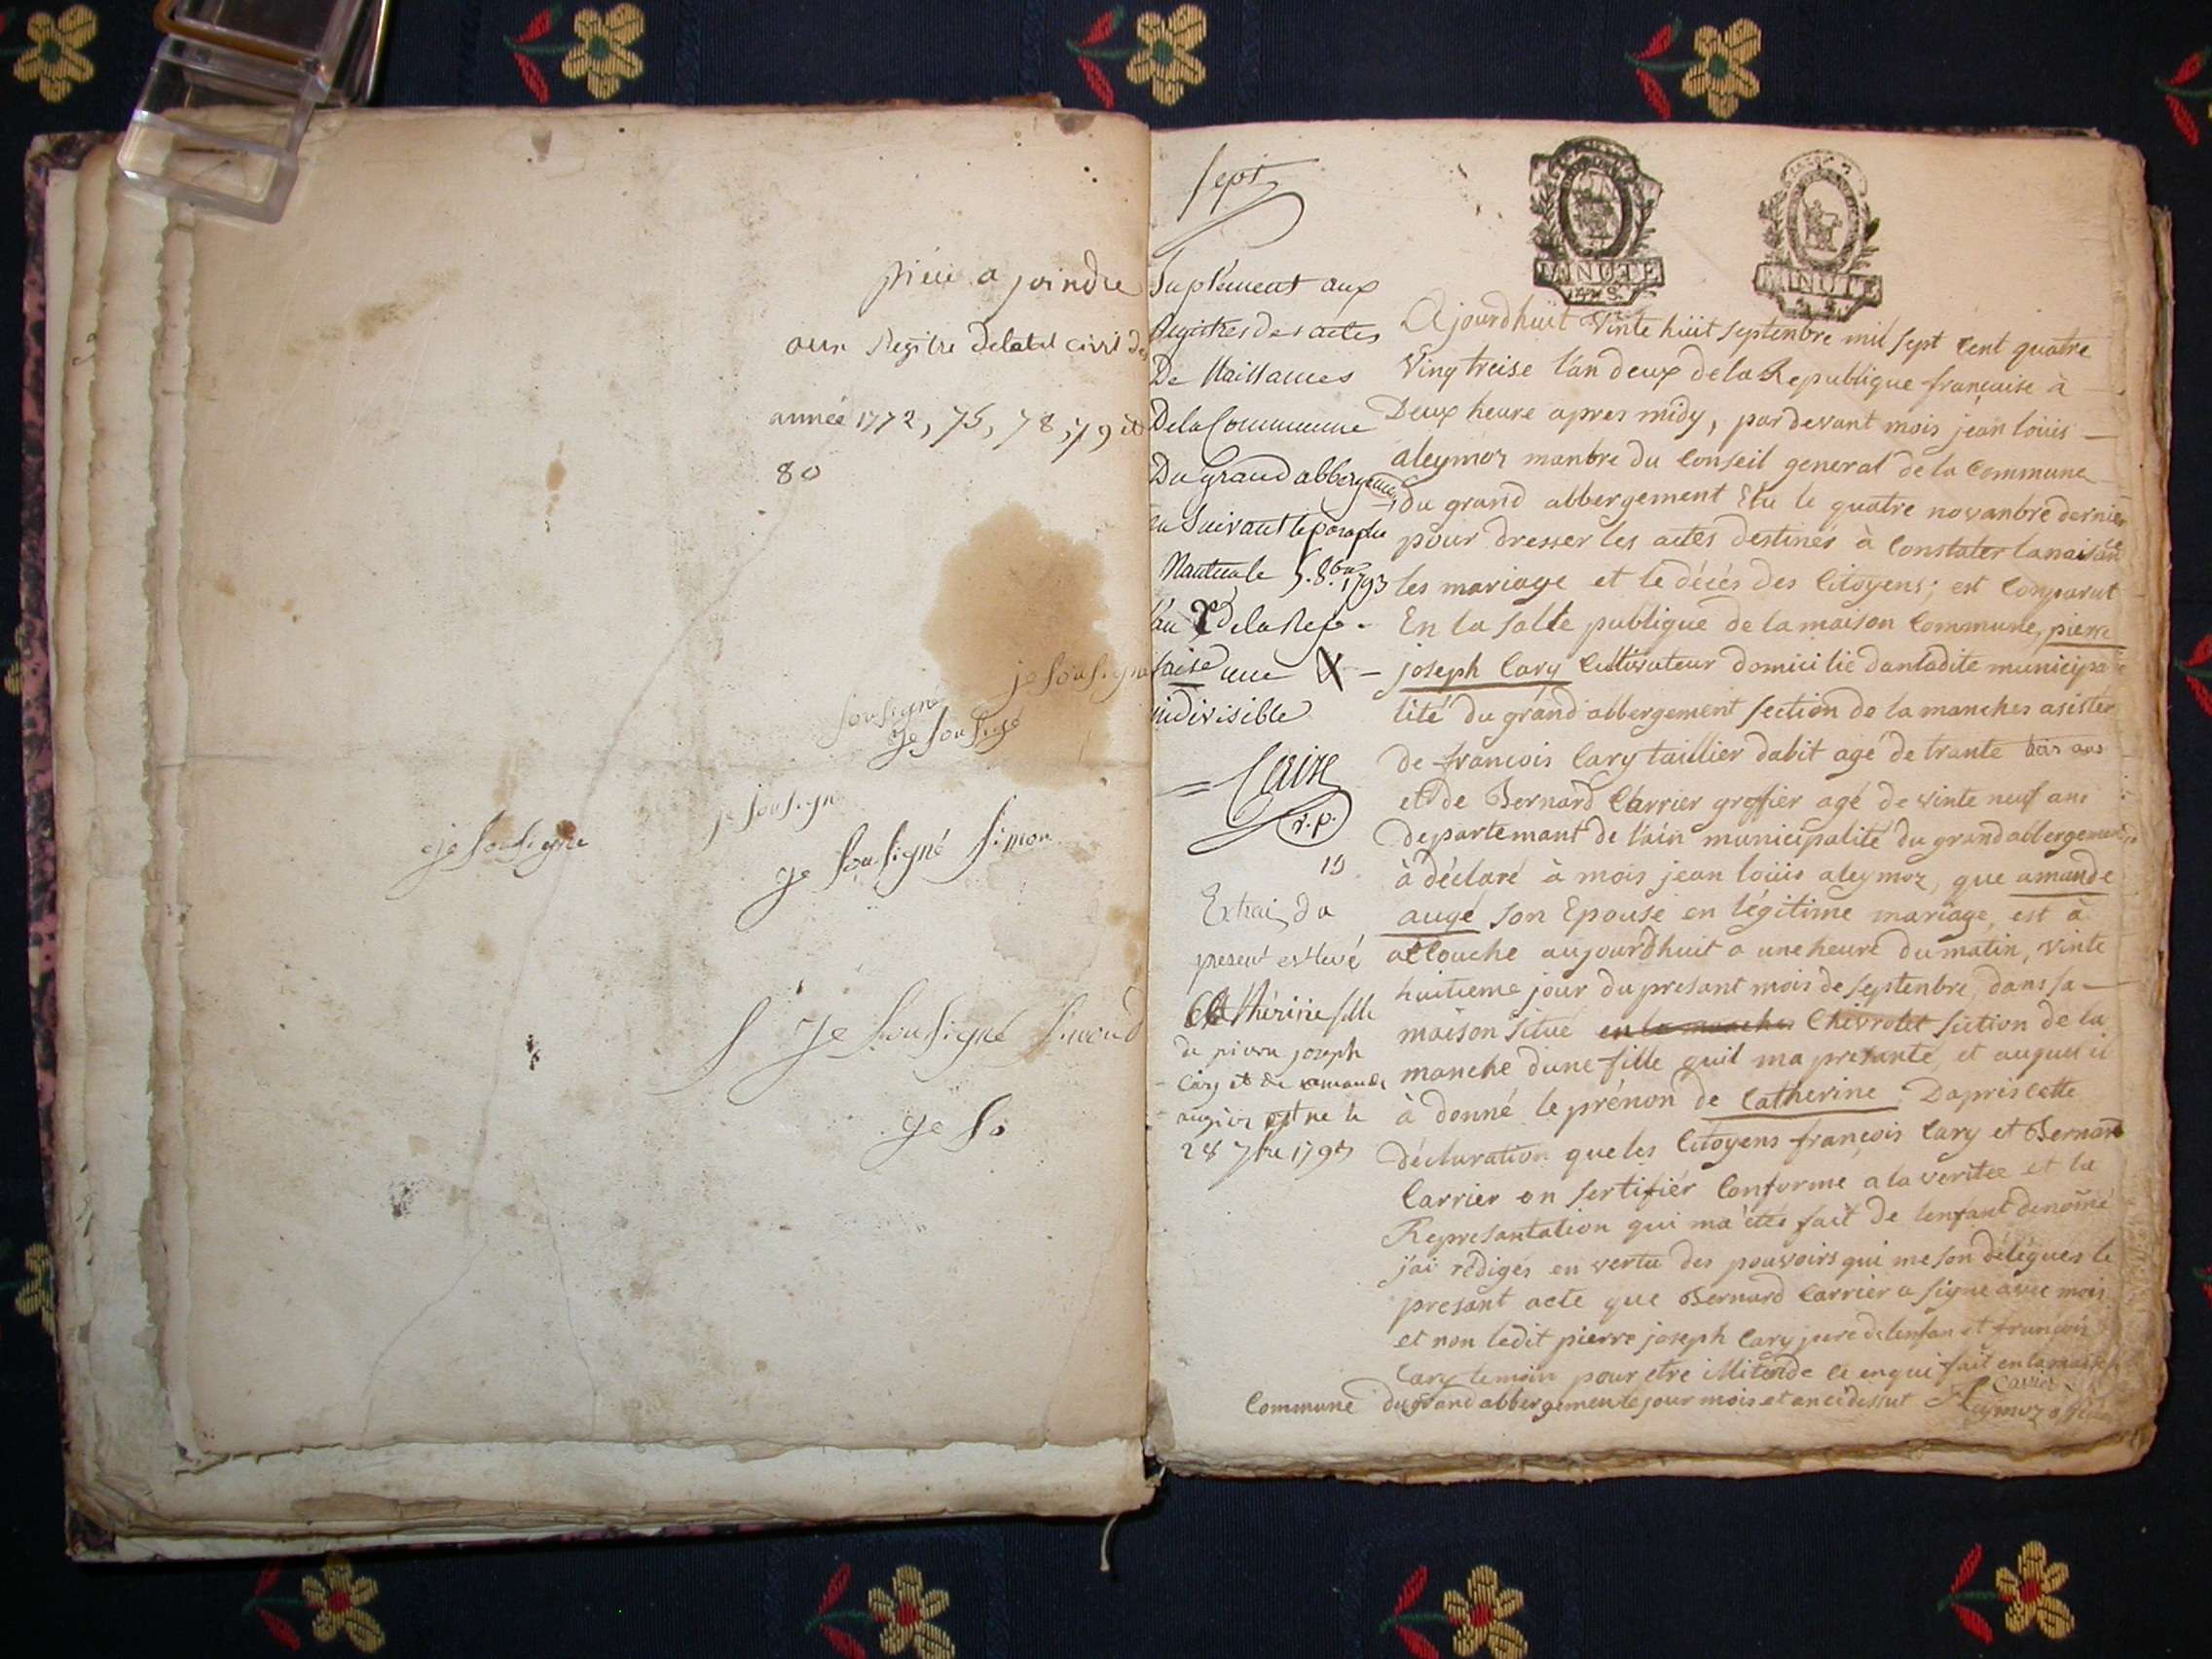 pièce a joindre
aux Registre de letat civil des
année 1772, 75, 78, 79 et
80
je sousigné
sousigné
je sousigé
je sousigné
je sousigne
je sousigné simon
je sousigné simond
je so
sept
Suplement aux
Registres des actes
De Naissances
De la Commune
Du grand abbergement
Suivant le paraphe
Nantua le 5. 8.bre 1793
l'an 2e de la Rep.
caise une X
indivisible
v.p.
19
Extrai du
present est levé
Cathérine fille
de pierre joseph
Cary et de amande
est ne le
28 7bre 1793
MINUTE
MINUTE
Ajourdhuit vinte hüit septenbre mil sept Cent quatre
Ving treise l'an deux de la Republique francaise à
Deux heure apres midy, par devant mois jean loüis
aleymoz manbre du Conseil general de la Commune
du grand abbergement Elu le quatre novanbre dernier
pour dresser les actes destinés à Constater la naisance
les mariage et le décés des Citoyens; est Conparut
En la salle publique de la maison Commune, pierre
joseph Cary Cultivateur domicilié danladite municipa
lité du grand abbergement section de la manches asister
de francois Cary taillier dabit agé de trante trois ans
et de Bernard Carrier greffier agé de vinte neuf ans
departemant de l'ain municipalité du grand abbergement
à déclaré à mois jean loüis aleymoz, que amande
augé son Epouse en légitime mariage, est à
accouche aujourdhuit a une heure du matin, vinte
huitieme jour du presant mois de septenbre, dans sa
maison situé en la manches Chevrolet section de la
manche dune fille quil ma presanté, et auquel il
à donné le prénon de Catherine. Dapres cette
déclaration que les Citoyens françois Cary et Bernard
Carrier on sertifiér Conforme a la veritee et la
Represantation qui ma étés fait de lenfant denomé
j'ai rédigés en vertu des pouvoirs qui me son délégues le
presant acte que Bernard Carrier a signe avec mois
et non ledit pierre joseph Cary pere de lenfan et françois
Cary temoin pour etre illiterde ce enqui fait en la maison
Commune du grand abbergement le jour mois et an cidessut
Carrier
Aleymoz officier